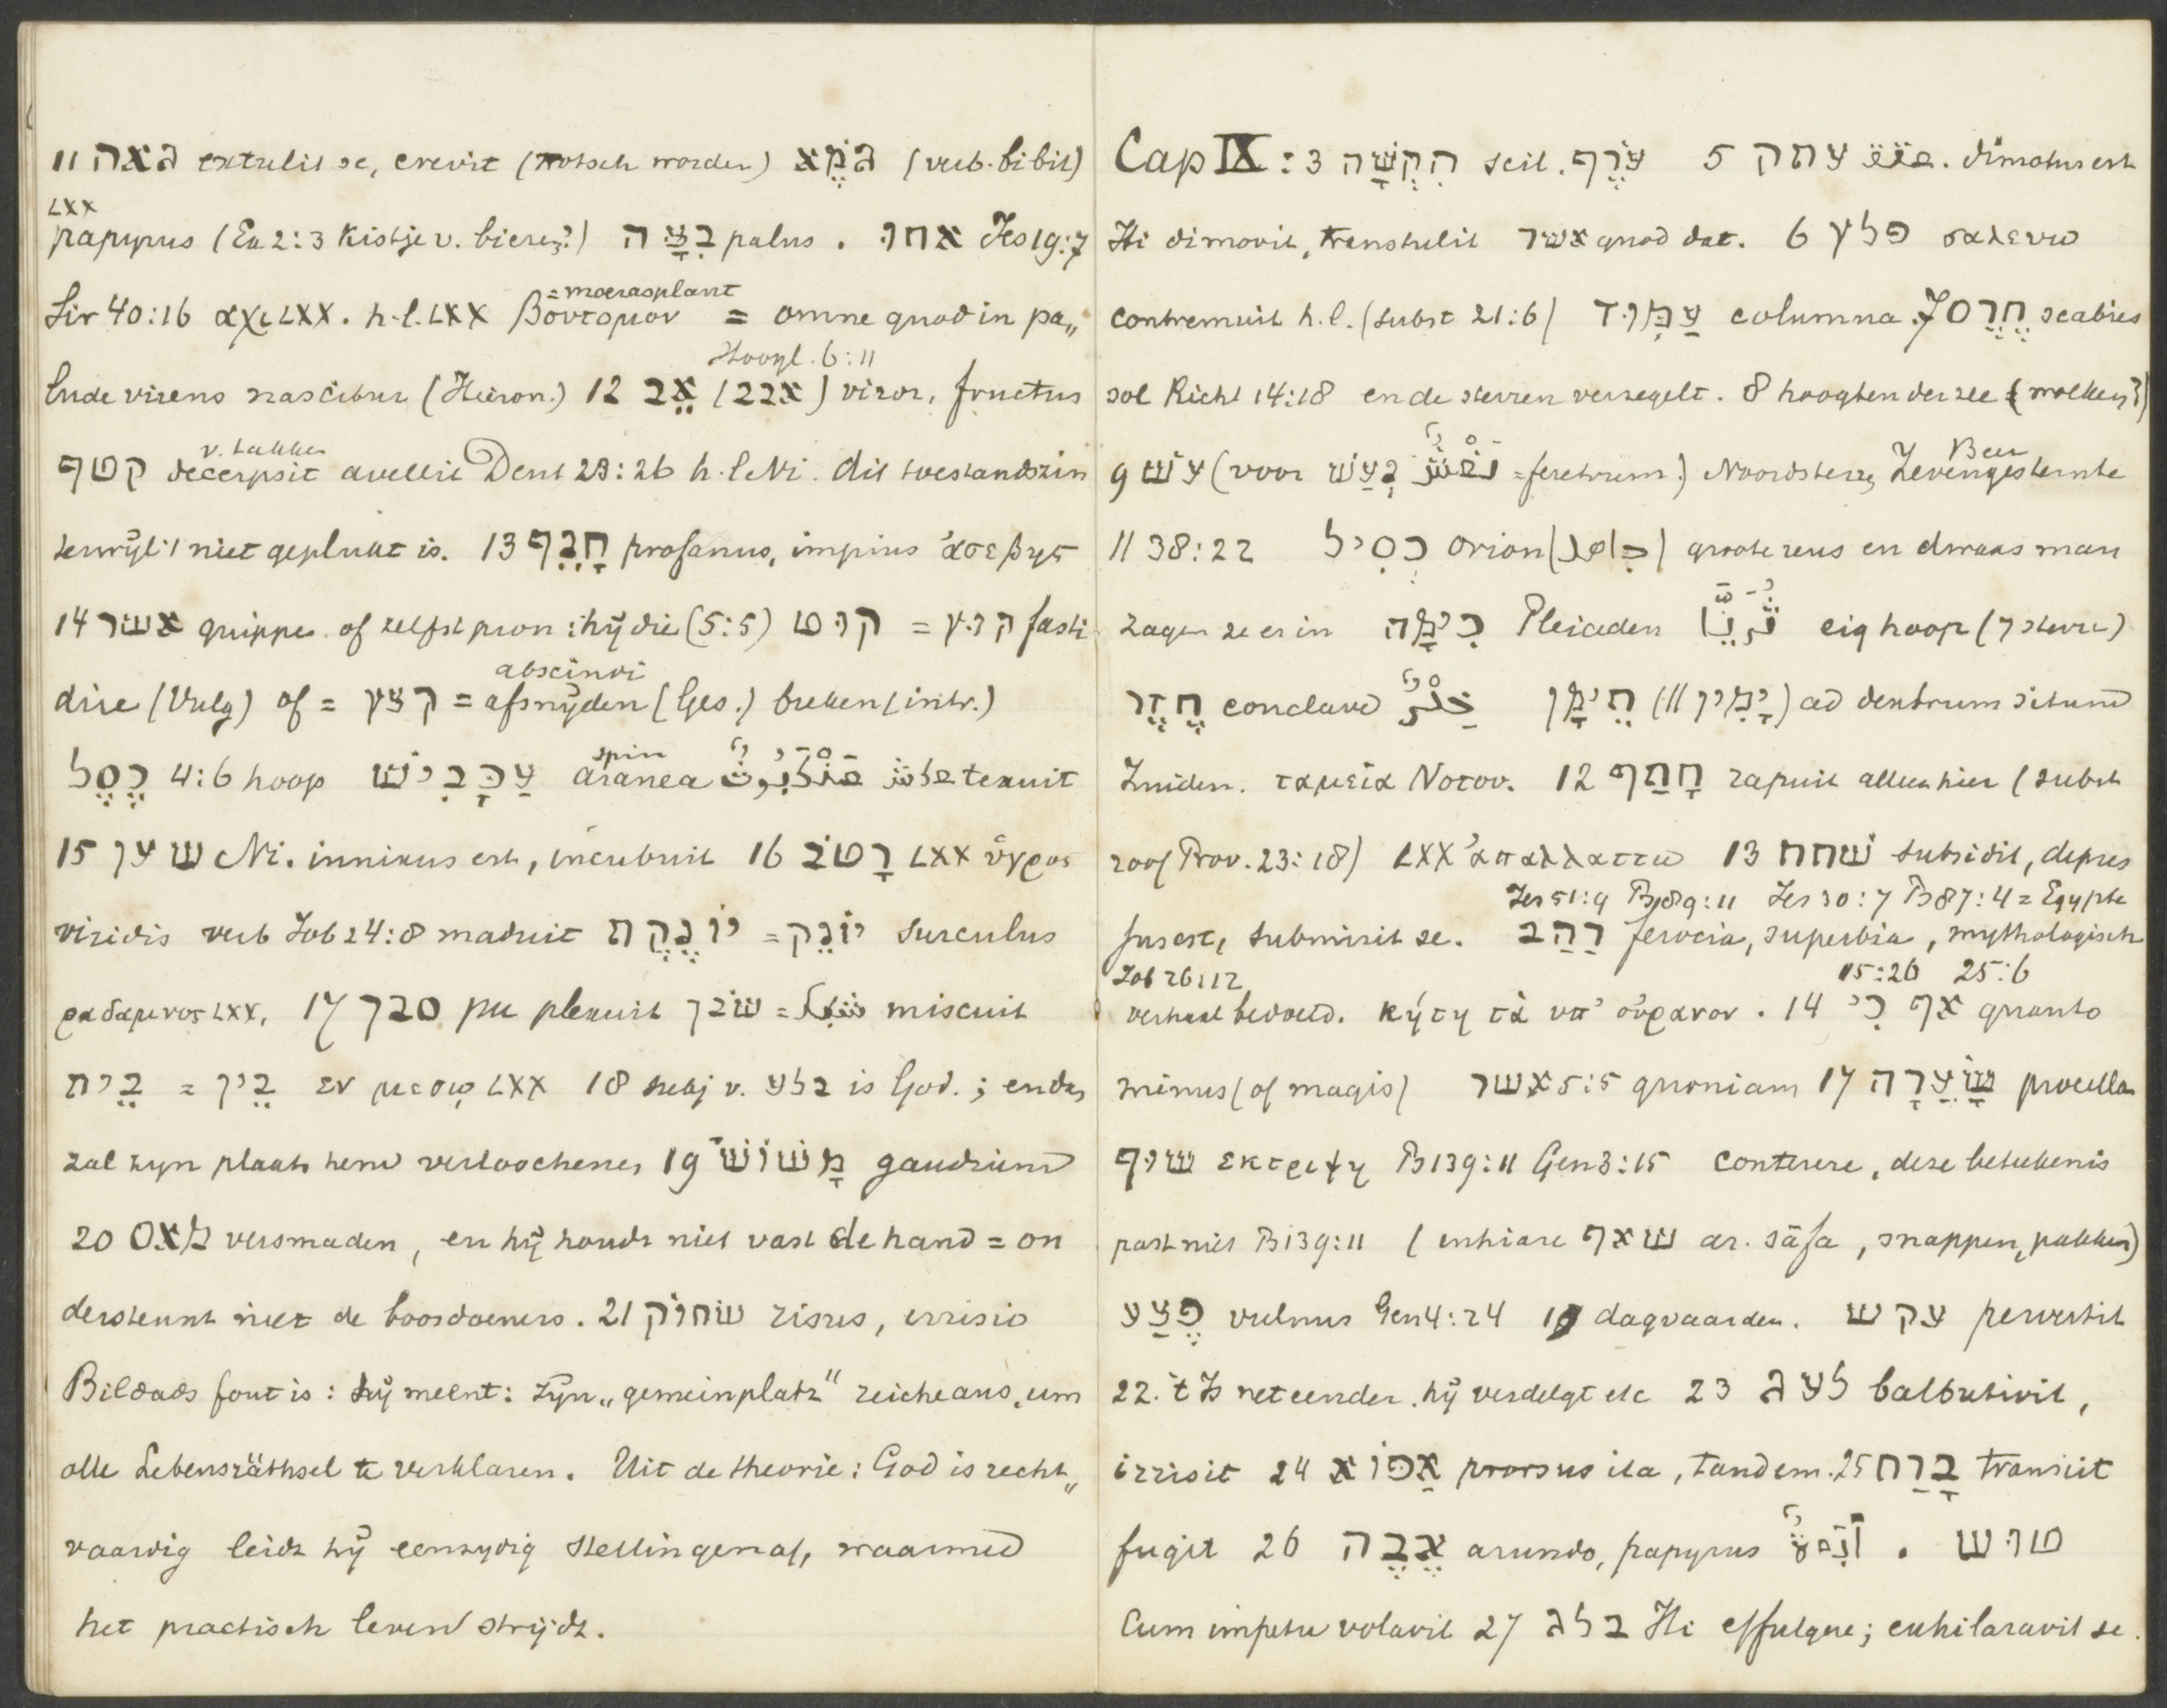 11 גאה extulit se, crevit (trotsch worden) גֹּמֶא (verb. bibit)
LXX
papyrus (Ex 2:3 Kistje v. biezen?) בִּצָּה palus . אחוּ Jes 19:7
Sir 40:16 αχι LXX. h.l. LXX βουτομον = omne quod in pa„
= moerasplant
lude virens nascitur (Hieron.) 12 אֵב (אבב) viror, fructus
Hoogl. 6:11
קטף decerpsit avellit Deut 23:26 h.l. Ni. dit toestandszin
v. takken
terwijl 't niet geplukt is. 13 חָנֵף profanus, impius ἀσεβης
14 אשר quippe of zelfst pron : hij die (5:5) קוּט = קוּץ fasti
dire (Vulg) of = קצץ = afsnijden (Ges.) breken (intr.)
abscindi
כֶּסֶל 4:6 hoop עַכָּבִישׁ aranea عَنْكَبُوتٌ عكش texuit
spin
15 שׁען Ni. innixus est, incubuit 16 רָטֹב LXX ὑγρος
viridis verb Job 24:8 maduit יוֹנֶקֶת = יוֹנֵק surculus
ραδαμνος LXX, 17 סבך pu plexuit שׂבך = شبك miscuit
בֵּית = בֵּין εν μεσῳ LXX 18 subj v. בלע is God. ; endan
zal zijn plaats hem verloochenen 19 מְשׂוֹשׂ gaudium
20 מאס versmaden, en hij houdt niet vast de hand = on
dersteunt niet de boosdoeners. 21 שׂחוֹק risus, irrisio
Bildads fout is: hij meent: zijn „gemeinplatz" reiche aus, um
alle Lebensräthsel te verklaren. Uit de theorie: God is recht„
vaardig leidt hij eenzijdig stellingen af, waarmed
het practisch leven strijdt.
Cap IX : 3 הִקְשָׁה scil. עֹרֶף 5 עתק عتق. dimotus est
Hi dimovit, transtulit אשר quod dat. 6 פלץ σαλευω
contremuit h.l. (subst 21:6) עַמּוּד columna. 7 חֶרֶס scabies
sol Richt 14:18 en de sterren verzegelt. 8 hoogten der zee (wolken?)
9 עשׁ (voor נַעַשׁ نَعْشٌ = feretrum.) Noordster, Zevengesternte
Beer
11 38:22 כְּסִיל orion (جاهل) groote reus en dwaas man
zagen ze er in כִּימָה Pleiaden ثُرَيَّا eig hoop (7 sterren)
חֶדֶר conclave خِدْرٌ תֵּימָן (יָמִין //) ad dextrum situm
Zuiden. ταμεία Νοτου. 12 חָתַף rapuit alleen hier (subst
roof Prov. 23:28) LXX ἀπαλλαττω 13 שׁחח subsidit, depres
Jes 51:9 Ps 89:11 Jes 30:7 Ps 87:4 = Egypte
sus est, submisit se. רַהַב ferocia, superbia, mythologisch
Job 26:12 15:26 25:6
verhaal bedoeld. κήτη τὰ υπ' οὐρανον . 14 אַף כִּי quanto
minus (of magis) אשר 5:5 quoniam 17 שְׂעָרָה procella
שׁוּף εκτριψη Ps 139:11 Gen 3:15 conterere, deze beteekenis
past niet Ps 139:11 (inhiare שׁאף ar. sāfa, snappen, pakken)
פֶּצַע vulnus Gen 4:24 19 dagvaarden. עקשׁ pervertit
22. 't Is net eender. hij verdelgt etc 23 לעג balbutivit,
irrisit 24 אֵפוֹא prorsus ita, tandem. 25 בָּרַח transiit
fugit 26 אֵבֶה arundo, papyrus أَبَاءٌ . טוּשׂ
Cum impetu volavit 27 בלג Hi effulgere; exhilaravit se.